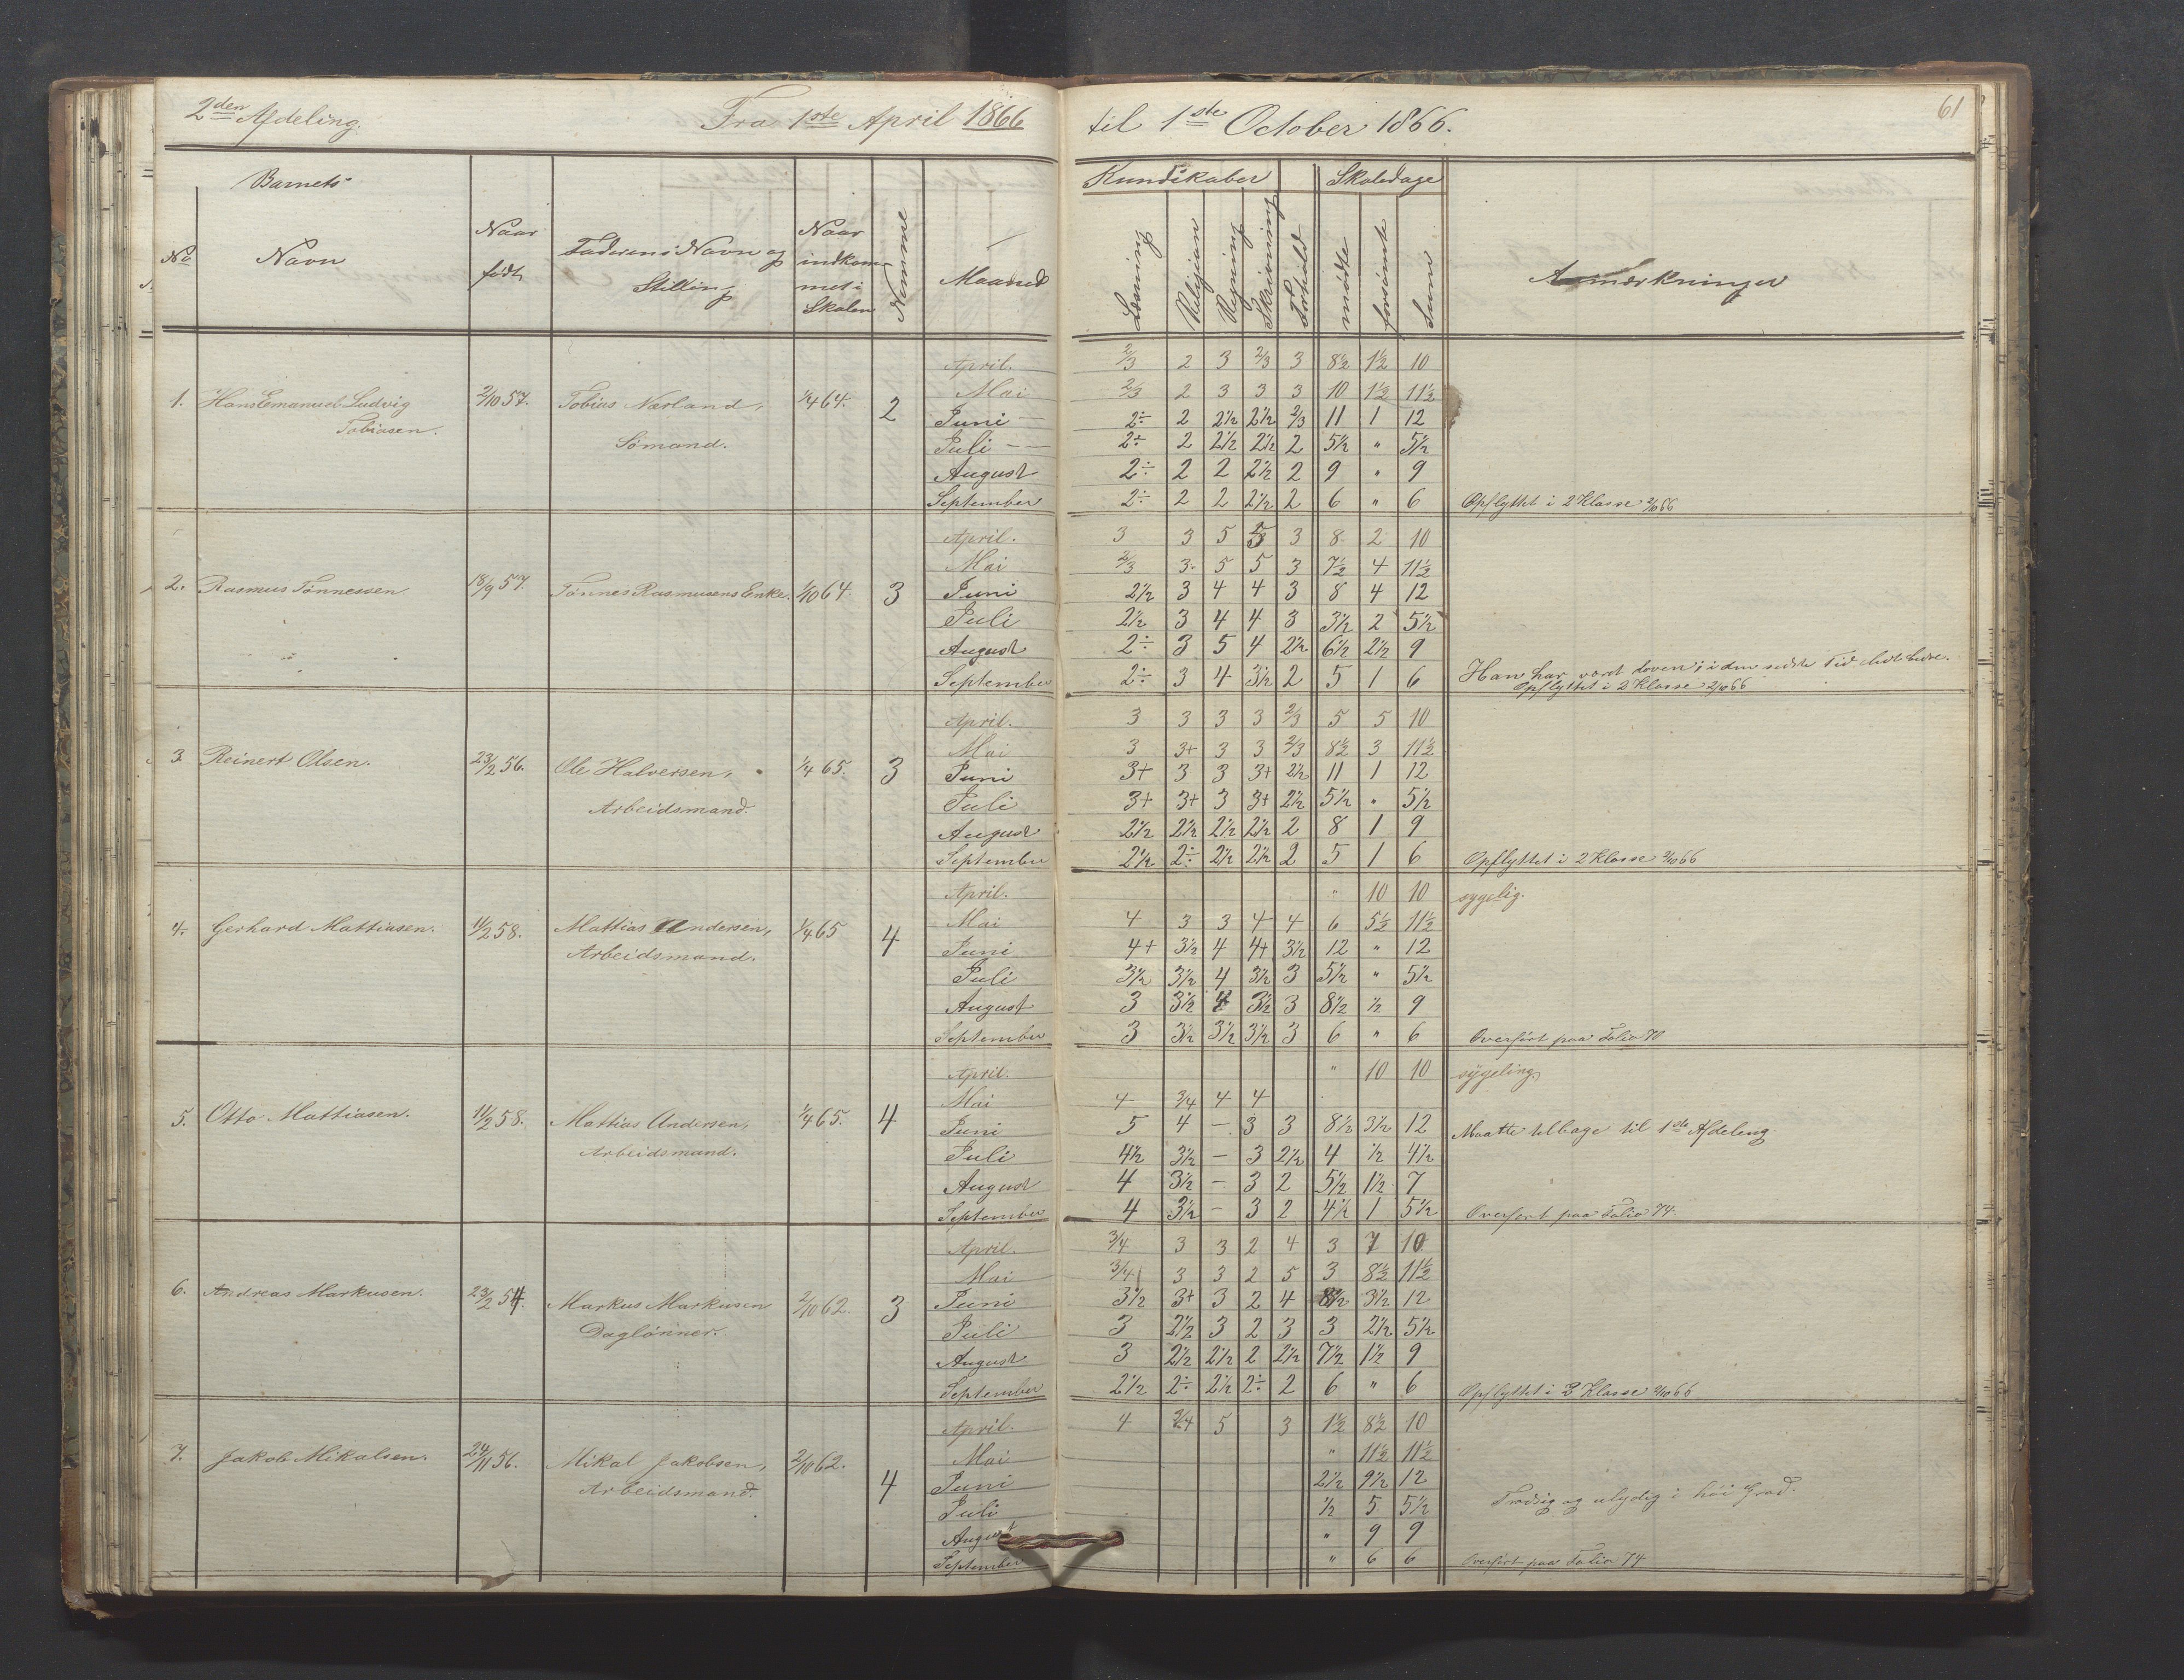 2den Afdeling. Fra 1ste April 1866 til 1ste October 1866. 61
Barnets Kundskaber Skoledage
No Navn Naar født Faderens Navn og Stilling Naar indkommet i Skolen Nemme Maaned Læsning Religion Regning Skrivning Forhold mødte forsømte Sum Anmærkninger
April. 2/3 2 3 2/3 3 8½ 1½ 10
1. Hans Emanuel Ludvig 2/10 57. Tobias Nærland, 1/4 64. 2 Mai 2/3 2 3 3 3 10 1½ 11½
Tobiasen. Juni 2÷ 2 2½ 2½ 2/3 11 1 12
Sömand. Juli 2÷ 2 2½ 2½ 2 5½ " 5½
August 2÷ 2 2 2½ 2 9 " 9
September 2÷ 2 2 2½ 2 6 " 6 Opflyttet i 2 Klasse 2/10 66
April. 3 3 5 5 3 8 2 10
Mai 2/3 3 5 5 3 7½ 4 11½
2. Rasmus Tönnessen 18/9 57. Tönnes Rasmusens Enke. 1/10 64. 3 Juni 2½ 3 4 4 3 8 4 12
Juli 2½ 3 4 4 3 3½ 2 5½
August 2÷ 3 5 4 2½ 6½ 2½ 9
September 2÷ 3 4 3½ 2 5 1 6 Han har været doven; i den sidste Tid lidt bedre.
Opflyttet i 2 Klasse 2/10 66
April. 3 3 3 3 2/3 5 5 10
3. Reinert Olsen. 23/2 56. Ole Halversen, 1/4 65. 3 Mai 3 3+ 3 3 2/3 8½ 3 11½
Juni 3+ 3 3 3+ 2½ 11 1 12
Arbeidsmand. Juli 3+ 3+ 3 3+ 2½ 5½ " 5½
August 2½ 2½ 2½ 2½ 2 8 1 9
September 2½ 2÷ 2½ 2½ 2 5 1 6 Opflyttet i 2 Klasse 2/10 66
April. " 10 10 sygelig.
4. Gerhard Mattiasen. 11/2 58. Mattias Andersen, 1/4 65 4 Mai 4 3 3 4 4 6 5½ 11½
Arbeidsmand. Juni 4+ 3½ 4 4+ 3½ 12 " 12
Juli 3½ 3½ 4 3½ 3 5½ " 5½
August 3 3½ 4 3½ 3 8½ ½ 9
September 3 3½ 3½ 3½ 3 6 " 6 Overført paa Folio 70
April. " 10 10 sygeling.
Mai 4 3/4 4 4
5. Otto Mattiasen. 11/2 58. Mattias Andersen, 1/4 65. 4 Juni 5 4 – 3 3 8½ 3½ 12 Maatte tilbage til 1ste Afdeling
Arbeidsmand. Juli 4½ 3½ – 3 2½ 4 ½ 4½
August 4 3½ – 3 2 5½ 1½ 7
September 4 3½ – 3 2 4½ 1 5½ Overført paa Folio 74.
April. 3/4 3 3 2 4 3 7 10
Mai 3/4 3 3 2 5 3 8½ 11½
6. Andreas Markusen. 23/2 54. Markus Markusen 2/10 62. 3 Juni 3½ 3+ 3 2 4 8½ 3½ 12
Daglönner. Juli 3 2½ 3 2 3 3 2½ 5½
August 3 2½ 2½ 2 2½ 7½ 1½ 9
September 2½ 2÷ 2½ 2÷ 2 6 " 6 Opflyttet i 3 Klasse 2/10 66
April. 4 3/4 5 3 1½ 8½ 10
7. Jakob Mikalsen. 24/11 56. Mikal Jakobsen, 2/10 62. 4 Mai " 11½ 11½
Arbeidsmand. Juni 2½ 9½ 12
Juli ½ 5 5½ Trodsig og ulydig i höi Grad.
August " 9 9
September " 6 6 Overført paa Folio 74